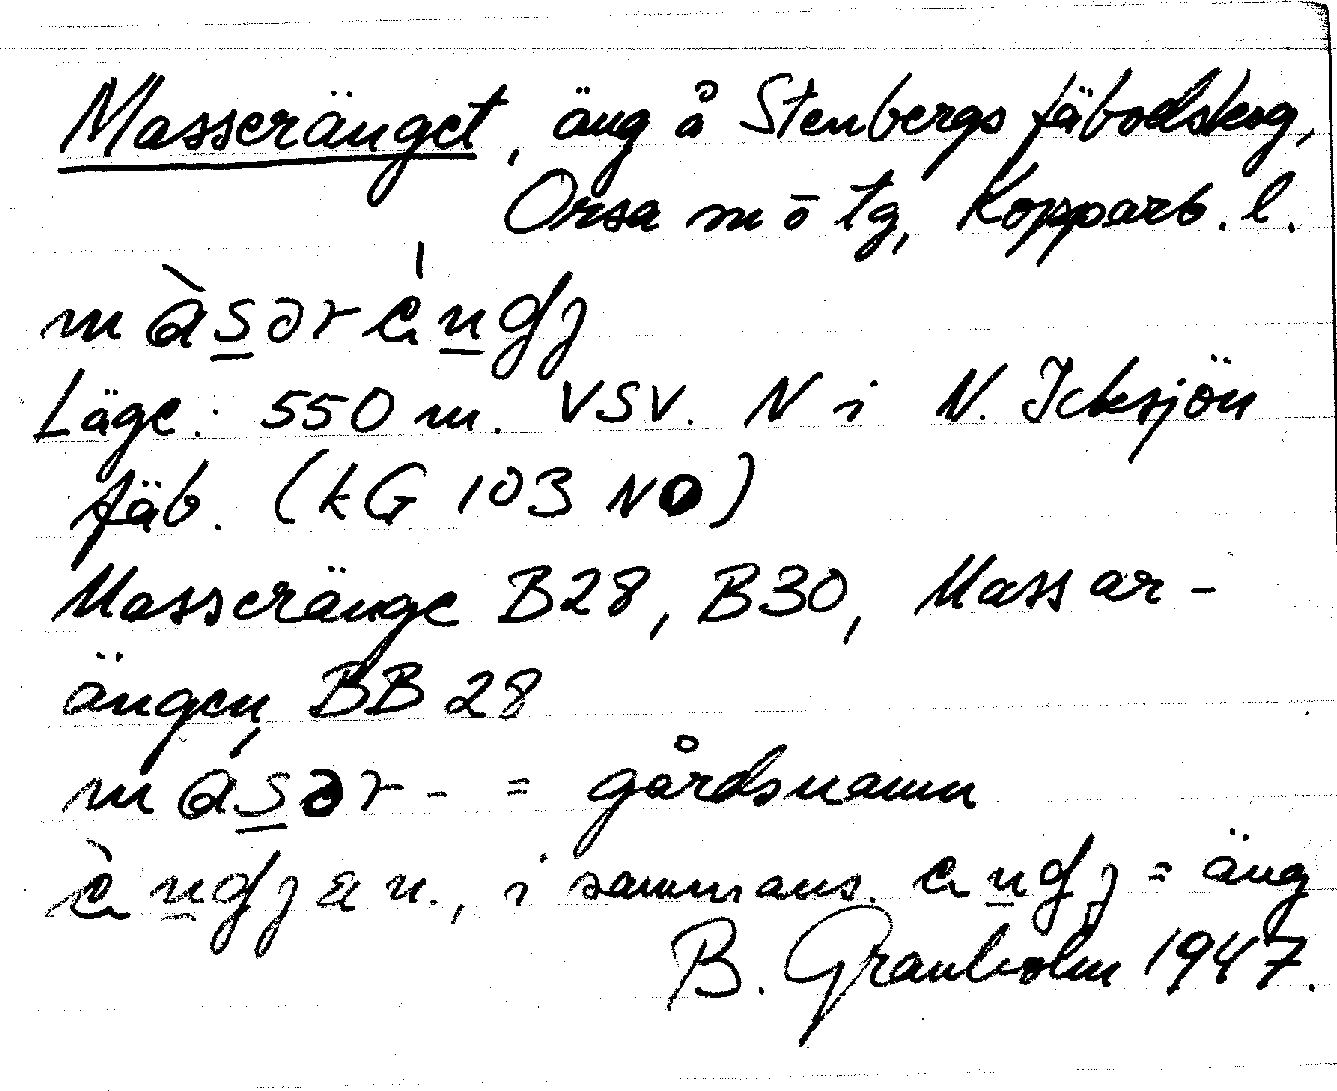 Masseränget, äng å Stenbergs fäbodskog,
Orsa sn o tg, Kopparb. l.
Läge: 550 m. VSV. N i N. Icksjön
fäb. (kG 103 NO)
Masseränge B28, B30, Massar-
ängen, BB 28
= gårdsnamn
n., i sammans. = äng
B. Granholm 1947.